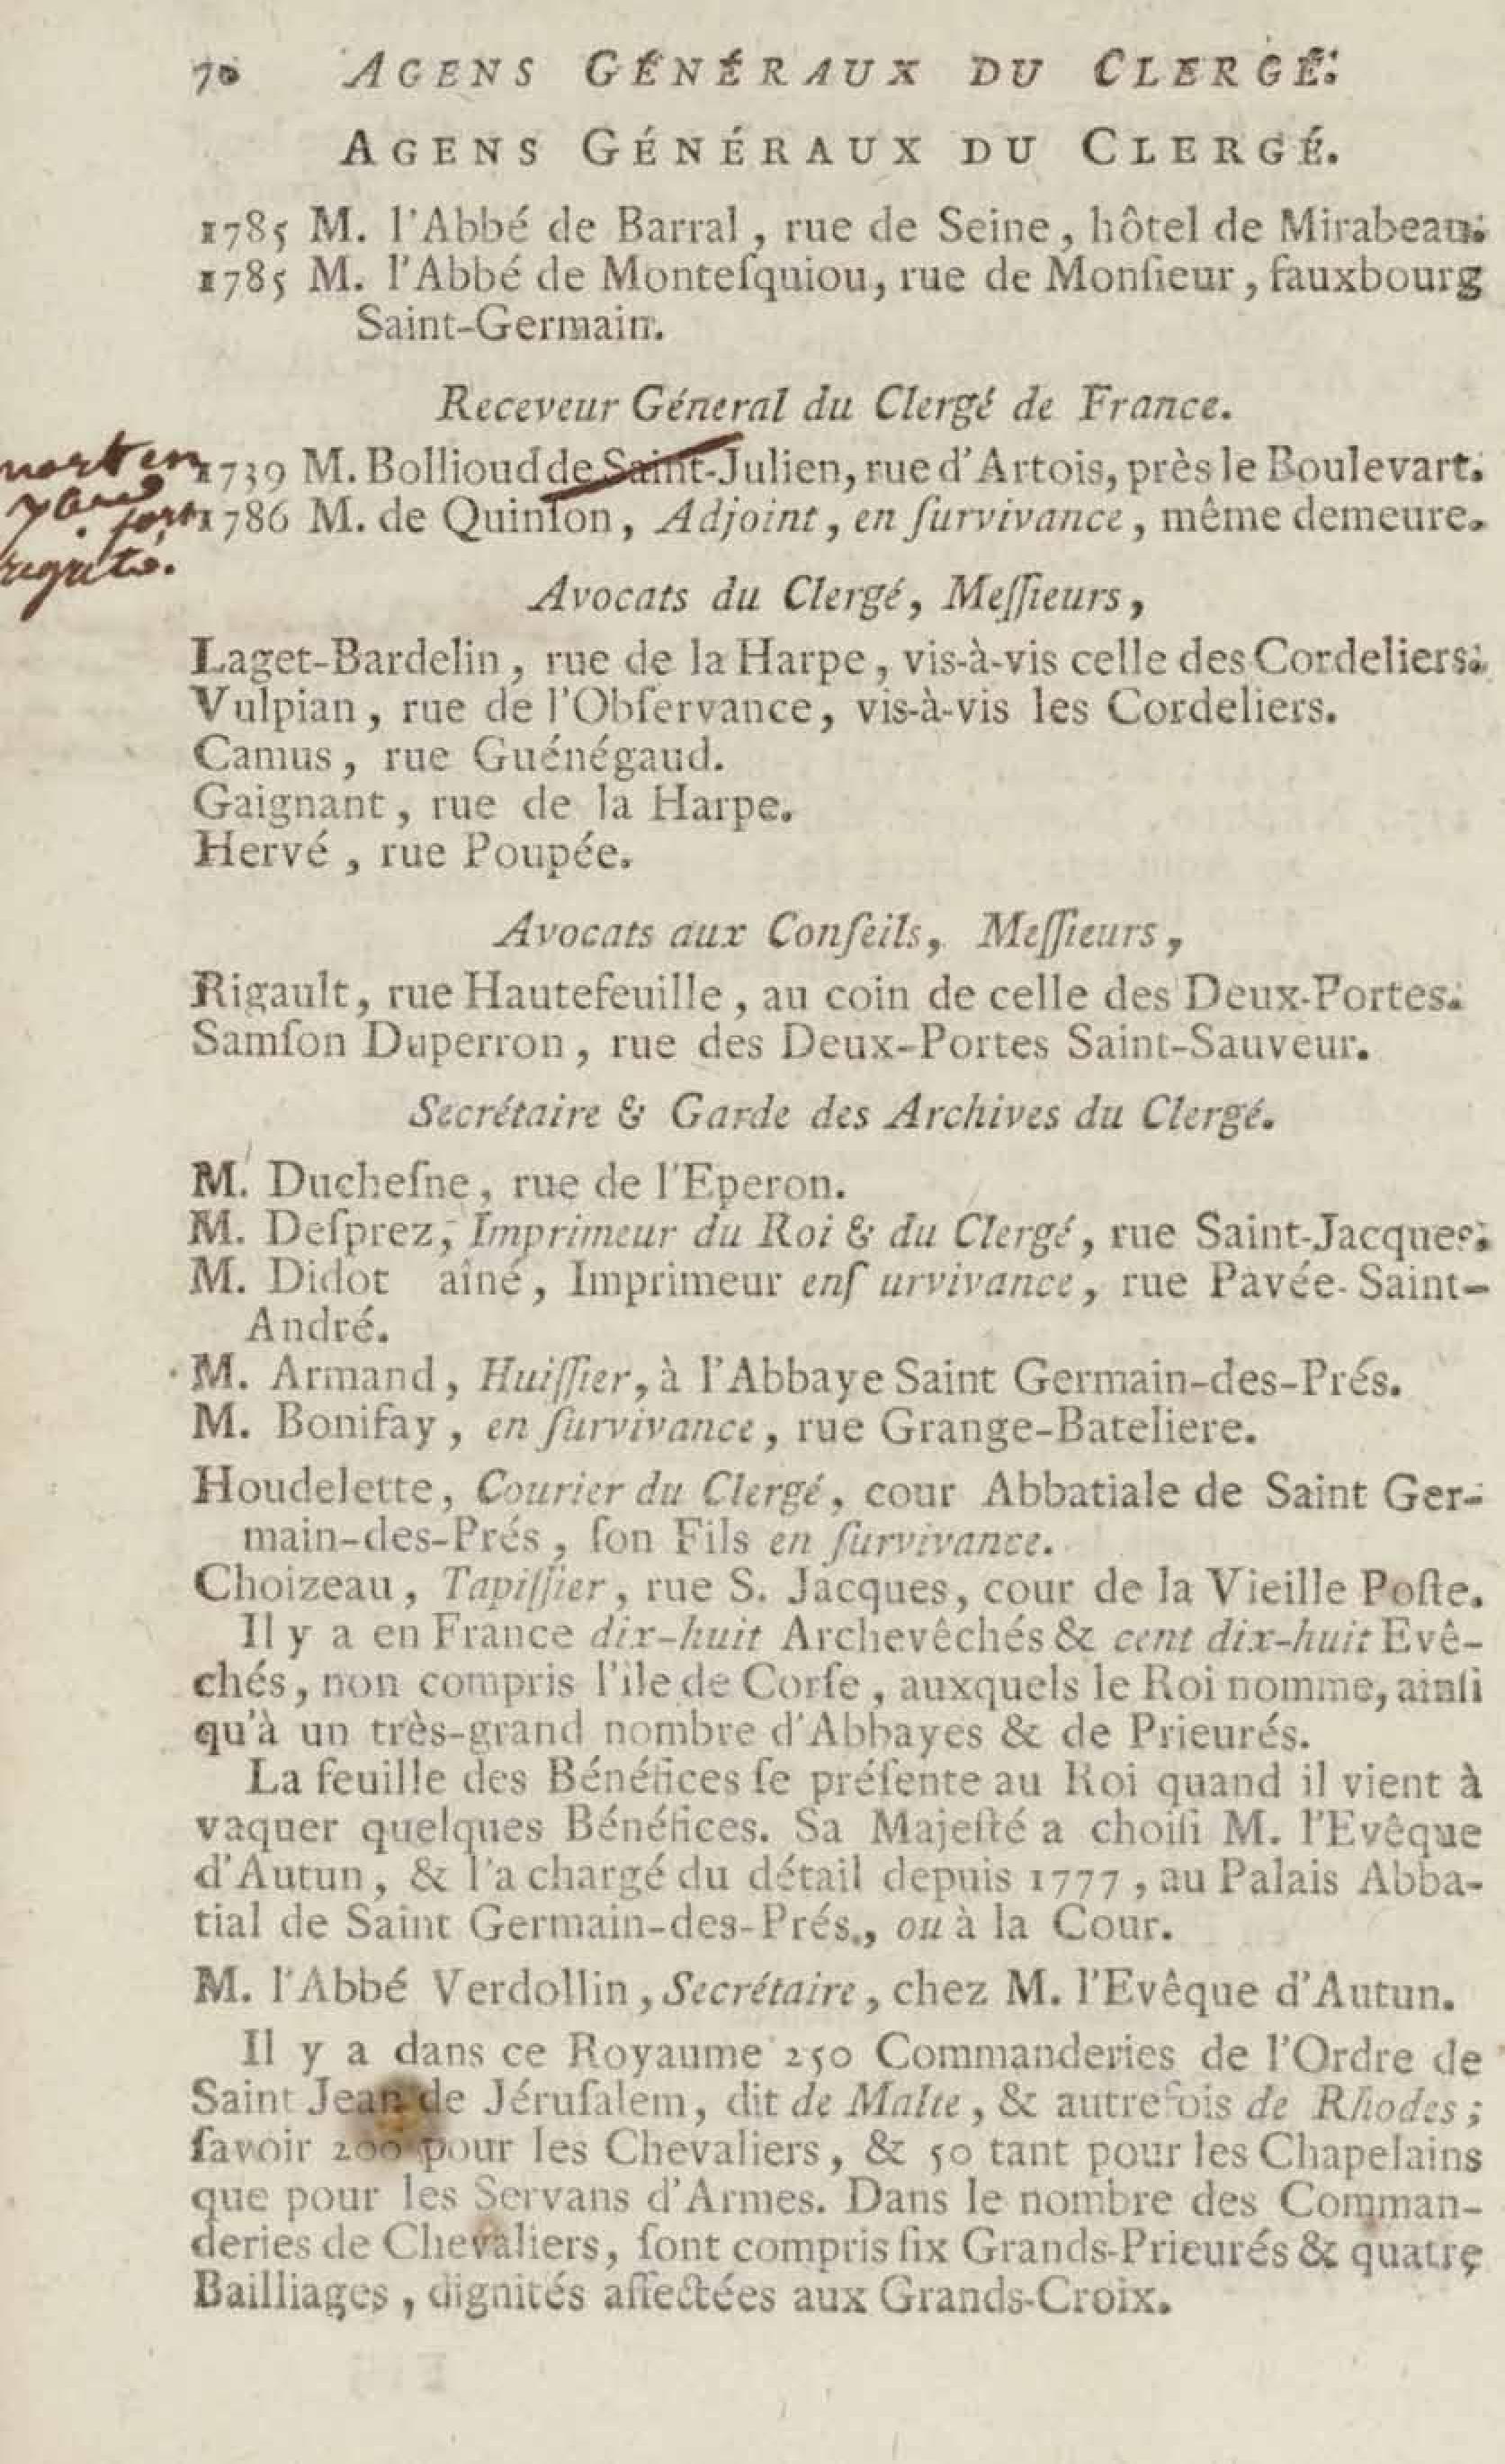 70 AGENS GÉNÉRAUX DU CLERGÉ.
AGENS GÉNÉRAUX DU CLERGÉ.
1785 M. l'Abbé de Barral, rue de Seine, hôtel de Mirabeau.
1785 M. l'Abbé de Monteſquiou, rue de Monſieur, fauxbourg
Saint-Germain.
Receveur Géneral du Clergé de France.
mort en
1739 M. Bollioud de Saint-Julien, rue d'Artois, près le Boulevart.
fort
1786 M. de Quinſon, Adjoint, en ſurvivance, même demeure.
Avocats du Clergé, Meſſieurs,
Laget-Bardelin, rue de la Harpe, vis-à-vis celle des Cordeliers.
Vulpian, rue de l'Obſervance, vis-à-vis les Cordeliers.
Camus, rue Guénégaud.
Gaignant, rue de la Harpe.
Hervé, rue Poupée.
Avocats aux Conſeils, Meſſieurs,
Rigault, rue Hautefeuille, au coin de celle des Deux-Portes.
Samſon Duperron, rue des Deux-Portes Saint-Sauveur.
Secrétaire & Garde des Archives du Clergé.
M. Ducheſne, rue de l'Eperon.
M. Deſprez, Imprimeur du Roi & du Clergé, rue Saint-Jacques.
M. Didot aîné, Imprimeur enſ urvivance, rue Pavée-Saint-
André.
M. Armand, Huiſſier, à l'Abbaye Saint Germain-des-Prés.
M. Bonifay, en ſurvivance, rue Grange-Bateliere.
Houdelette, Courier du Clergé, cour Abbatiale de Saint Ger-
main-des-Prés, ſon Fils en ſurvivance.
Choizeau, Tapiſſier, rue S. Jacques, cour de la Vieille Poſte.
Il y a en France dix-huit Archevêchés & cent dix-huit Evê-
chés, non compris l'ile de Corſe, auxquels le Roi nomme, ainſi
qu'à un très-grand nombre d'Abbayes & de Prieurés.
La feuille des Bénéfices ſe préſente au Roi quand il vient à
vaquer quelques Bénéfices. Sa Majeſté a choiſi M. l'Evêque
d'Autun, & l'a chargé du détail depuis 1777, au Palais Abba-
tial de Saint Germain-des-Prés, ou à la Cour.
M. l'Abbé Verdollin, Secrétaire, chez M. l'Evêque d'Autun.
Il y a dans ce Royaume 250 Commanderies de l'Ordre de
Saint Jean de Jéruſalem, dit de Malte, & autrefois de Rhodes;
ſavoir 200 pour les Chevaliers, & 50 tant pour les Chapelains
que pour les Servans d'Armes. Dans le nombre des Comman-
deries de Chevaliers, ſont compris ſix Grands-Prieurés & quatre
Bailliages, dignités affectées aux Grands-Croix.